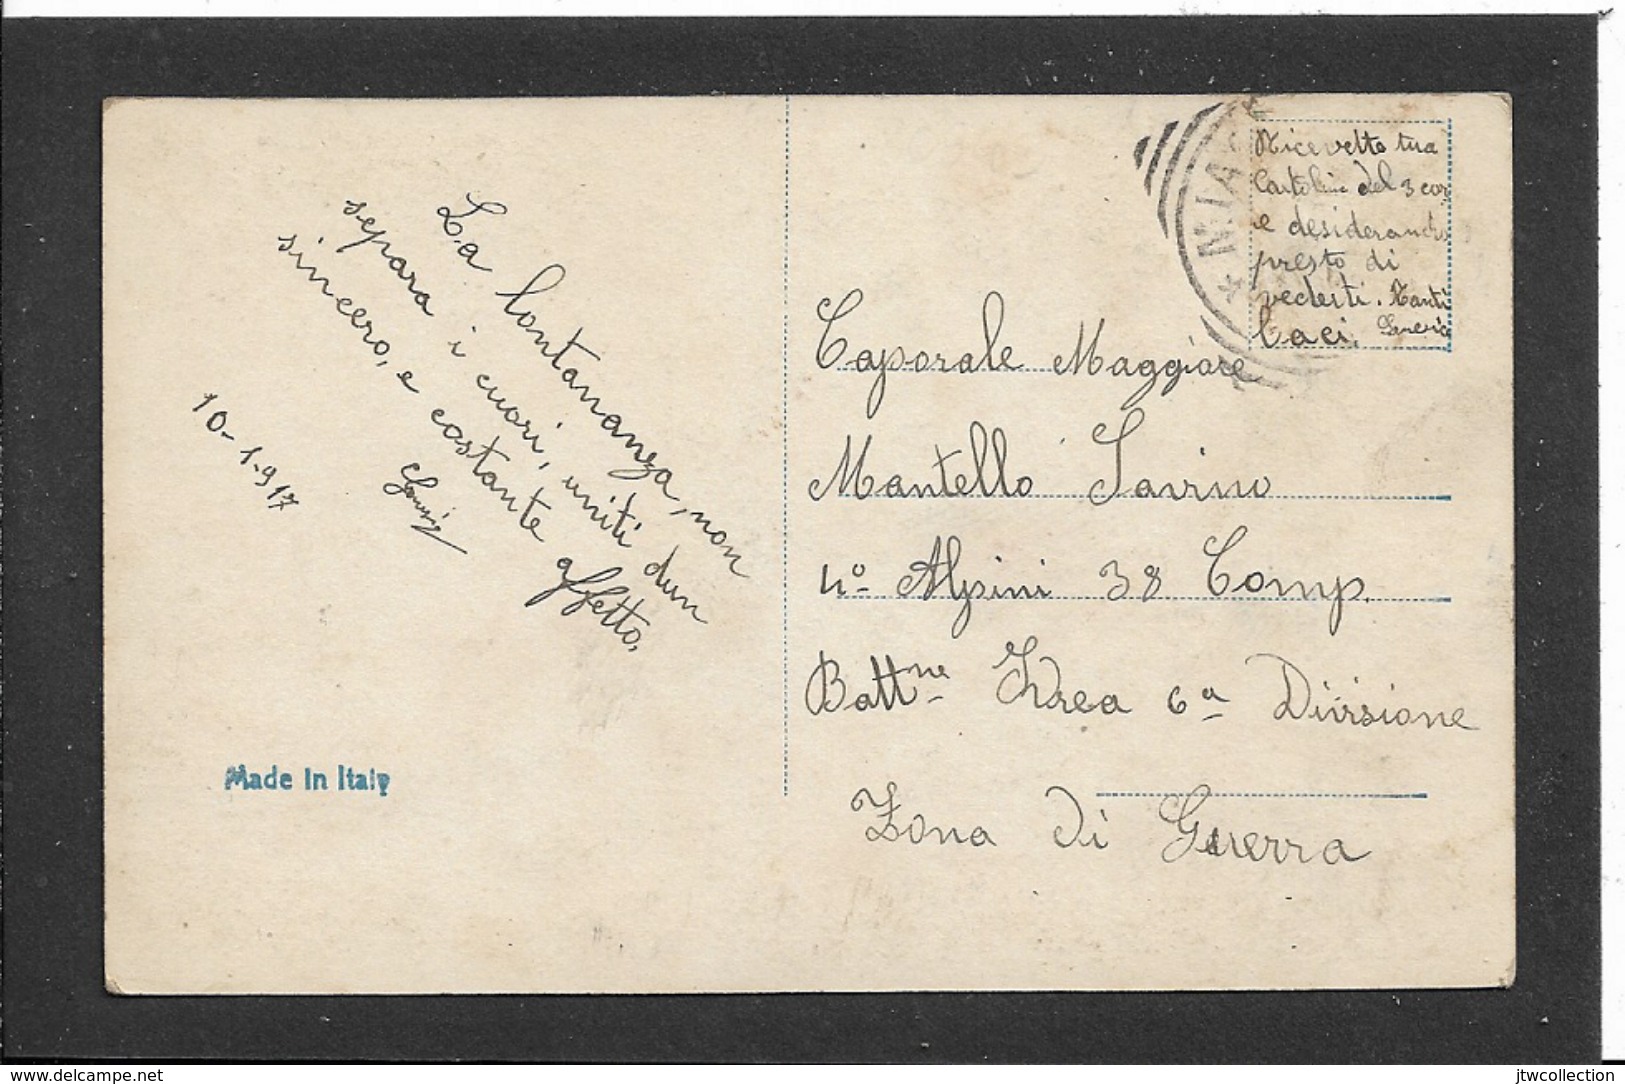 La lontananza, non
separa i cuori, uniti dun
sincero, e costante affetto.
10-1-917
Made in Italy
Ricevetto tua
Cartolina del 3 cor
e desiderando
presto di
vederti. Tanti
baci.
Caporale Maggiore
Mantello Savino
4º Alpini 38 Comp.
Battne Ivrea 6a Divisione
Zona di Guerra
jtwcollection
www.delcampe.net